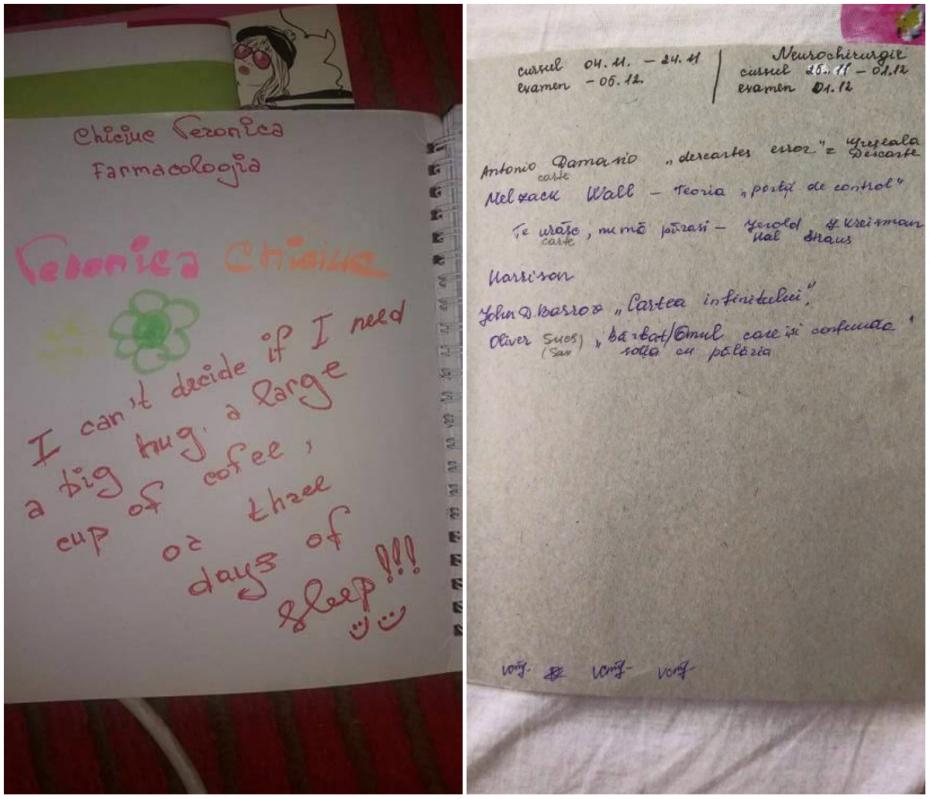 Chiciuc Veronica
Farmacologia
Veronica Chiciuc
I can't decide if I need
a big hug, a large
cup of cofee,
or three
days of
sleep!!!
cursul 04.11. – 24.11
examen – 05.12.
Neurochirurgie
cursul 25.11 – 01.12
examen 01.12
Antonio Damasio „descartes error" = Greșeala
carte
Descarte
Melzack Wall – Teoria „porții de control"
Te urăsc, nu mă părăsi – Jerold J. Kreisman
carte
Hal Straus
Harrison
John D. Barrow „Cartea infinitului".
Oliver Sucs) „bărbat/Omul care își confunda"
(San
soția cu pălăria